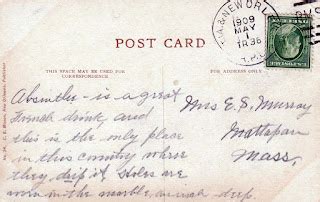 & NEW ORL
1909
MAY
1
TR 36
R.P.O.
POST CARD
THIS SPACE MAY BE USED FOR
CORRESPONDENCE
FOR ADDRESS ONLY
Absinthe - is a great
French drink, and
this is the only place
in this country where
they drip it, holes are
worn in the marble an inch deep.
Mrs E. S. Murray
Mattapan
Mass,
New Orleans, Publisher